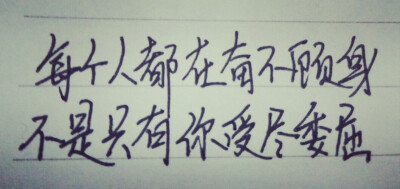 每个人都在奋不顾身
不是只有你受尽委屈